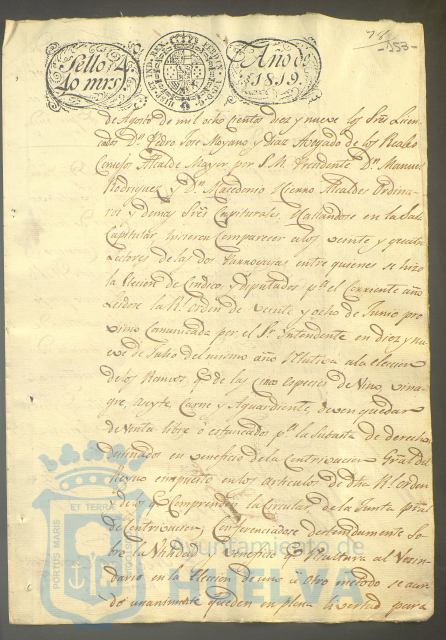 Sello 4.
40 mrs
Año de
1819.
153
de Agosto de mil ocho cientos diez y nueve los Sres Licen
ciados Dn. Pedro Jose Moyano y Diaz Avogado de los Reales
Consejos Alcalde Mayor por S.M. Precidente Dn. Manuel
Rodriguez y Dn. Macedonio Alcaldes Ordina
rios y demas Sres Capitulares, Hallandose en la Sala
Capitular hisieron Comparecer a los veinte y quatro
Lectores de las dos Parroquias entre quienes se hizo
la Eleccion de Cindico y Diputados pa. el Corriente año
Leidose la Rl. orden de veinte y ocho de Junio pro
ximo Comunicada por el Sr. Intendente en diez y nu
eve de Julio del mismo año Relativa a la eleccion
de los Ramos, q. de las Cinco especies de Vino, vina
gre, aseyte, Carne y Aguardiente, deven quedar
de Venta libre o estancados pr. la Subasta de derechos
Desinados en veneficio de la Contrivucion Gral. del
Reyno en los articulos de dha Rl. orden
y de lo q. Comprende la Circular de la Junta pral.
de Contrivucion, Conferenciadose detenidamente So
bre la Utilidad y veneficio q. al Vesin
dario en la Eleccion de uno u otro metodo se acor
dó unanimemte queden en plena livertad para
PORTUS MARIS
ET TERRAE
Ayuntamiento de
HUELVA